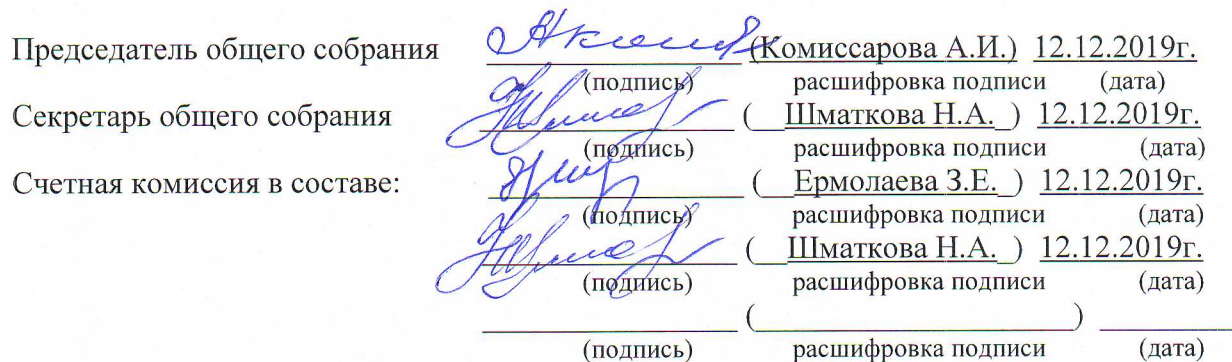 Председатель общего собрания (Комиссарова А.И.) 12.12.2019г.
(подпись) расшифровка подписи (дата)
Секретарь общего собрания (__Шматкова Н.А._) 12.12.2019г.
(подпись) расшифровка подписи (дата)
Счетная комиссия в составе: (__Ермолаева З.Е._) 12.12.2019г.
(подпись) расшифровка подписи (дата)
(__Шматкова Н.А._) 12.12.2019г.
(подпись) расшифровка подписи (дата)
(____________________) ________
(подпись) расшифровка подписи (дата)